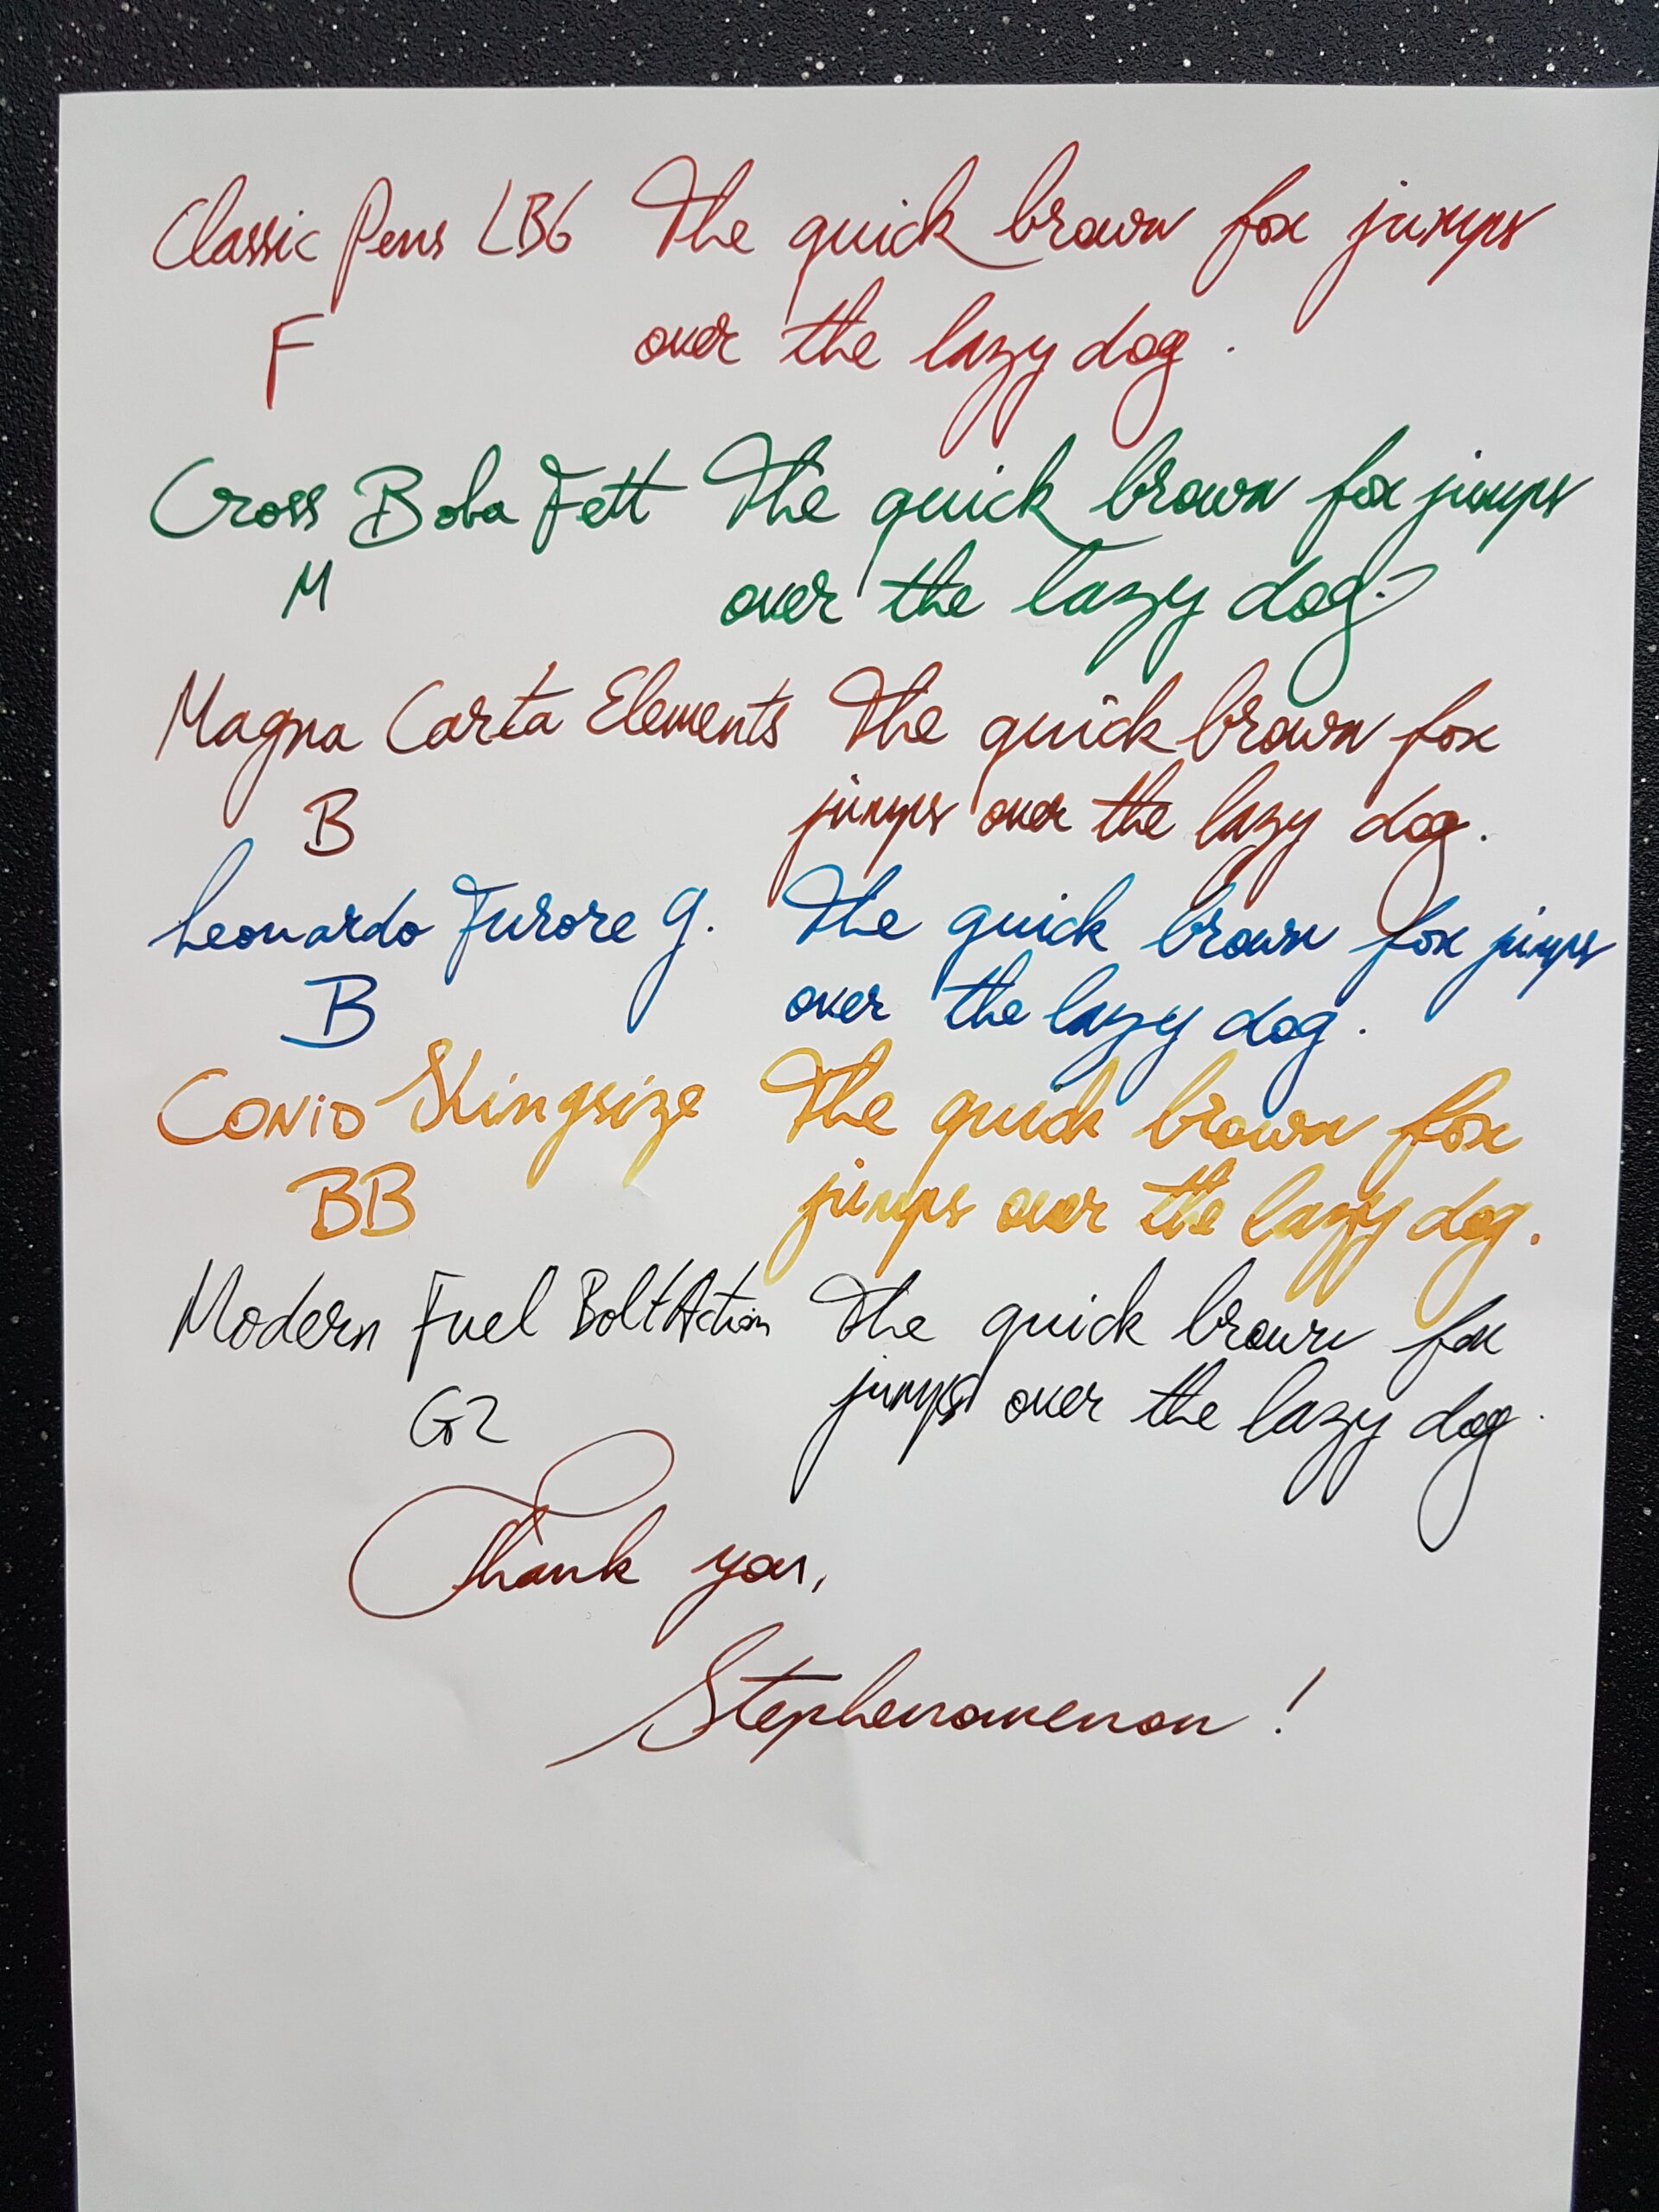 Classic Pens LB6 The quick brown fox jumps
F over the lazy dog.
Cross Boba Fett The quick brown fox jumps
M over the lazy dog.
Magna Carta Elements The quick brown fox
B jumps over the lazy dog.
Leonardo Furore G. The quick brown fox jumps
B over the lazy dog.
Conid Kingsize The quick brown fox
BB jumps over the lazy dog.
Modern Fuel Bolt Action The quick brown fox
G2 jumps over the lazy dog.
Thank you,
Stephenomenon!